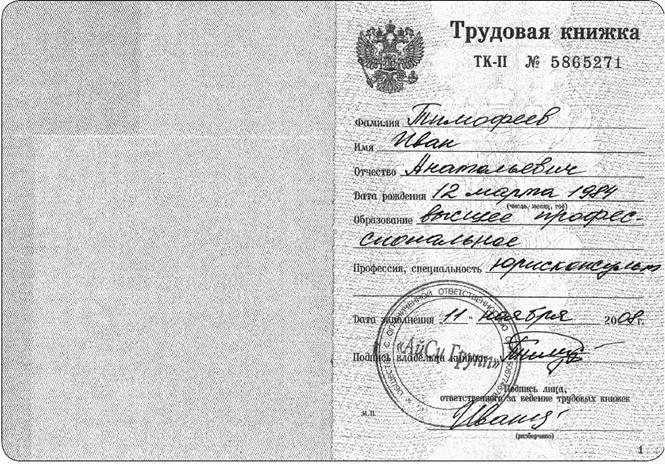 Трудовая книжка
ТК-II № 5865271
Фамилия Тимофеев
Имя Иван
Отчество Анатольевич
Дата рождения 12 марта 1984
(число, месяц, год)
Образование высшее профес-
сиональное
Профессия, специальность юрисконсульт
Дата заполнения 11 ноября 2008 г.
Подпись владельца книжки
ОБЩЕСТВО С ОГРАНИЧЕННОЙ ОТВЕТСТВЕННОСТЬЮ
«АйСи Групп»
Подпись лица,
ответственного за ведение трудовых книжек
М.П.
(разборчиво)
1